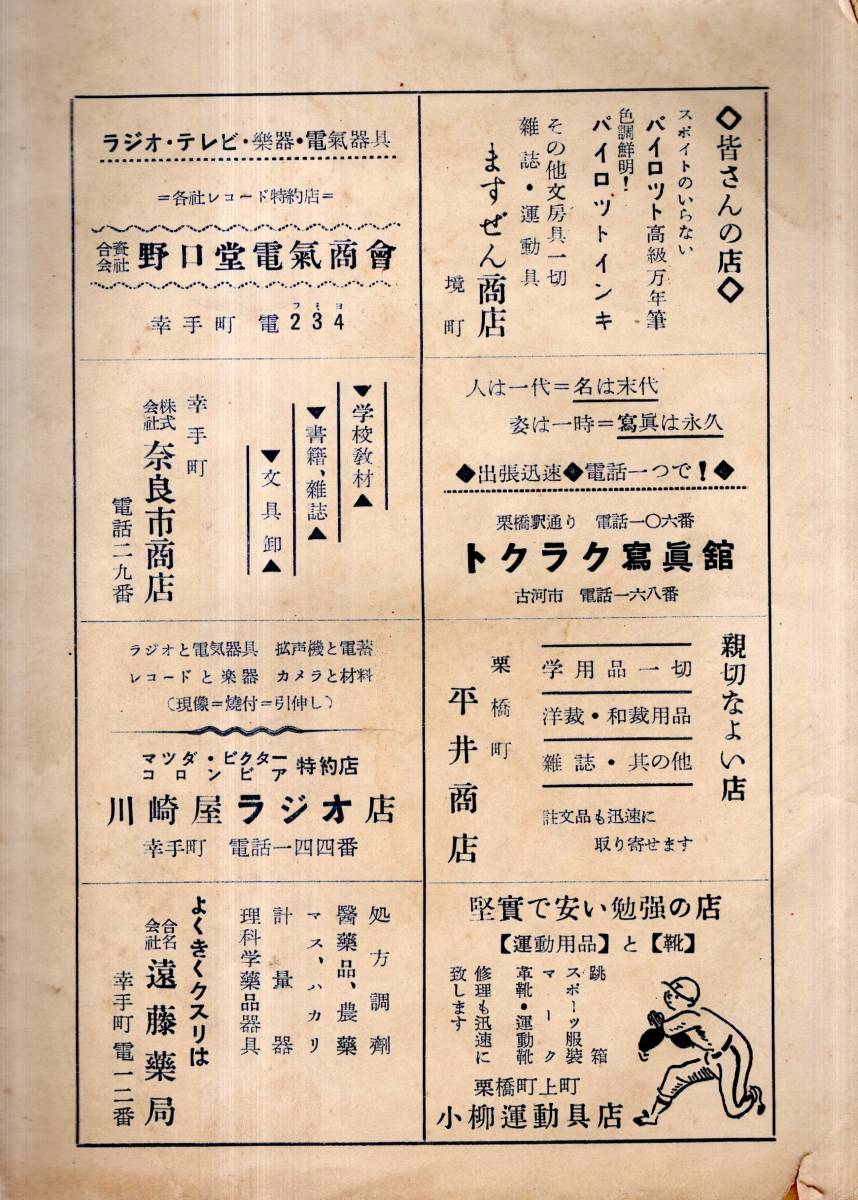 ◇皆さんの店◇
スポイトのいらない
パイロツト高級万年筆
色調鮮明!
パイロツトインキ
その他文房具一切
雑誌・運動具
ますぜん商店
境町
人は一代=名は末代
姿は一時=寫眞は永久
◆出張迅速◆電話一つで!◆
栗橋駅通り 電話一〇六番
トクラク寫眞舘
古河市 電話一六八番
親切なよい店
学用品一切
洋裁・和裁用品
雑誌・其の他
註文品も迅速に
取り寄せます
栗橋町
平井商店
堅實で安い勉强の店
【運動用品】と【靴】
跳箱
スポーツ服裝
マーク
革靴・運動靴
修理も迅速に
致します
栗橋町上町
小柳運動具店
ラジオ・テレビ・樂器・電氣器具
=各社レコード特約店=
合資会社 野口堂電氣商會
フミヨ
幸手町 電234
▼学校教材▲
▼書籍、雑誌▲
▼文具卸▲
幸手町
株式会社 奈良市商店
電話二九番
ラジオと電気器具 拡声機と電蓄
レコードと楽器 カメラと材料
(現像=燒付=引伸し)
マツダ・ビクター
コロンビア
特約店
川崎屋ラジオ店
幸手町 電話一四四番
処方調劑
醫藥品、農藥
マス、ハカリ
計量器
理科学藥品器具
よくきくクスリは
合名会社 遠藤藥局
幸手町 電一二番